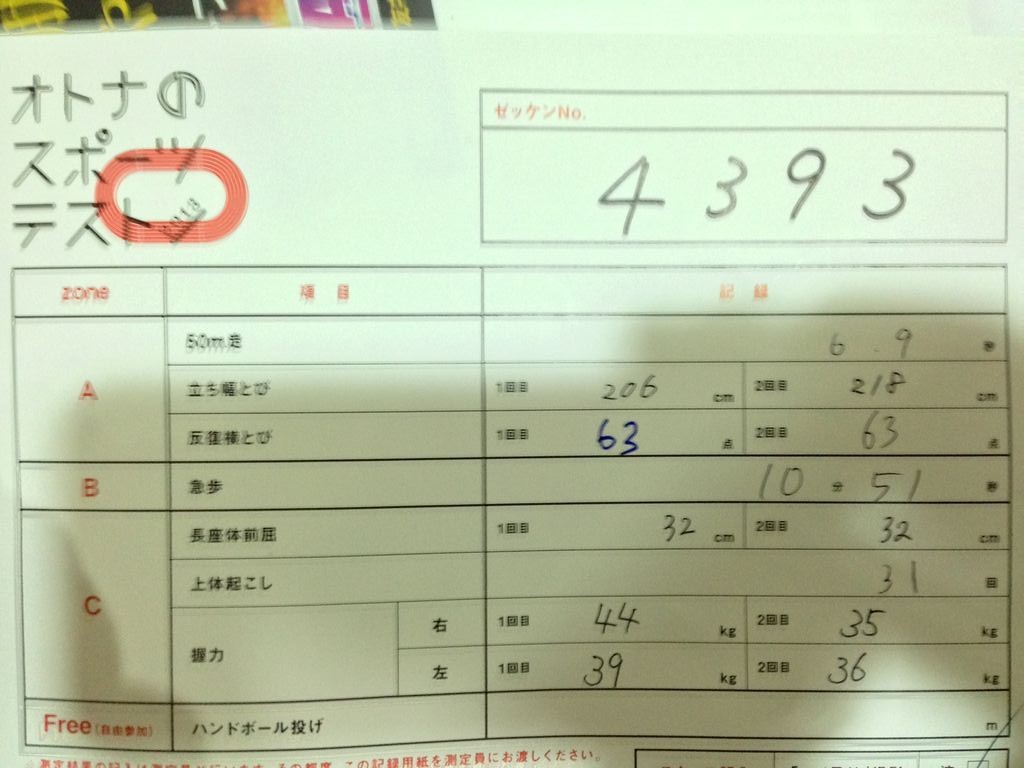 オトナの
スポーツ
テスト 2018
ゼッケンNo.
4393
zone 項目 記録
A
50m走 6.9 秒
立ち幅とび 1回目 206 cm 2回目 218 cm
反復横とび 1回目 63 点 2回目 63 点
B 急歩 10 分 51 秒
C
長座体前屈 1回目 32 cm 2回目 32 cm
上体起こし 31 回
握力
右 1回目 44 kg 2回目 35 kg
左 1回目 39 kg 2回目 36 kg
Free(自由参加) ハンドボール投げ m
この記録用紙を測定員にお渡しください。